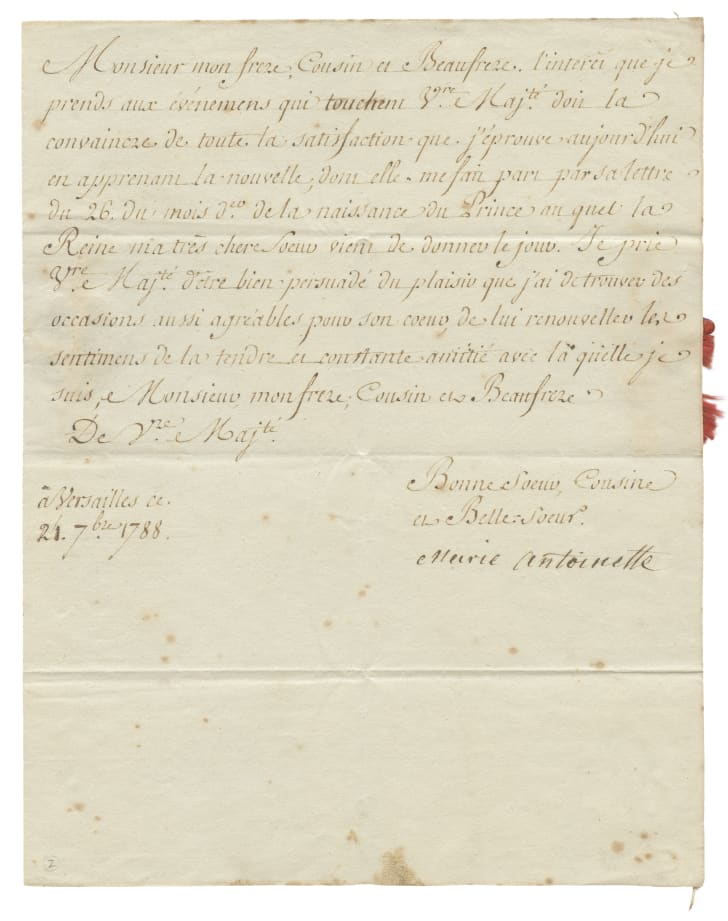 Monsieur mon frere, Cousin et Beaufrere. l'interêt que je
prends aux événemens qui touchent Vʳᵉ. Majᵗé. doit la
convaincre de toute la satisfaction que j'éprouve aujourd'hui
en apprenant la nouvelle, dont elle me fait part par sa lettre
du 26. du mois dᵉʳ de la naissance du Prince au quel la
Reine ma très chere Soeur vient de donner le jour. Je prie
Vʳᵉ. Majᵗé. d'être bien persuadé du plaisir que j'ai de trouver des
occasions aussi agréables pour son coeur de lui renouveller les
sentimens de la tendre et constante amitié avec la quelle je
suis, Monsieur, mon frere, Cousin et Beaufrere
De Vʳᵉ. Majᵗé.
Bonne Soeur, Cousine
et Belle-Soeur.
à Versailles ce
24. 7ᵇʳᵉ 1788.
Marie Antoinette
2